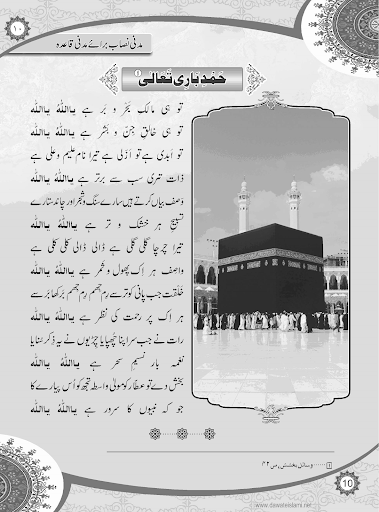 ۱۰
مدنی نصاب برائے مدنی قاعدہ
حَمْدِ بَارِی تَعَالٰی
تو ہی مالکِ بحر و بر ہے یااللہُ یااللہ
تو ہی خالقِ جنّ و بشر ہے یااللہُ یااللہ
تو اَبدی ہے تو اَزَلی ہے تیرا نام علیم و علی ہے
ذات تیری سب سے برتر ہے یااللہُ یااللہ
وصف بیاں کرتے ہیں سارے سنگ و شجر اور چاند ستارے
تسبیح ہر خشک و تر ہے یااللہُ یااللہ
تیرا چرچا گلی گلی ہے ڈالی ڈالی کلی کلی ہے
واصف ہر اِک پھول و ثمر ہے یااللہُ یااللہ
خلقت جب پانی کو ترسے رِم جھم رِم جھم برکھا برسے
ہر اِک پر رحمت کی نظر ہے یااللہُ یااللہ
رات نے جب سر اپنا چھپایا چڑیوں نے یہ ذکر سنایا
نغمہ بار نسیمِ سحر ہے یااللہُ یااللہ
بخش دے تو عطّار کو مولیٰ واسطہ تجھ کو اُس پیارے کا
جو کہ نبیوں کا سرور ہے یااللہُ یااللہ
1 ......وسائلِ بخشش، ص ۴۲
10
www.dawateislami.net